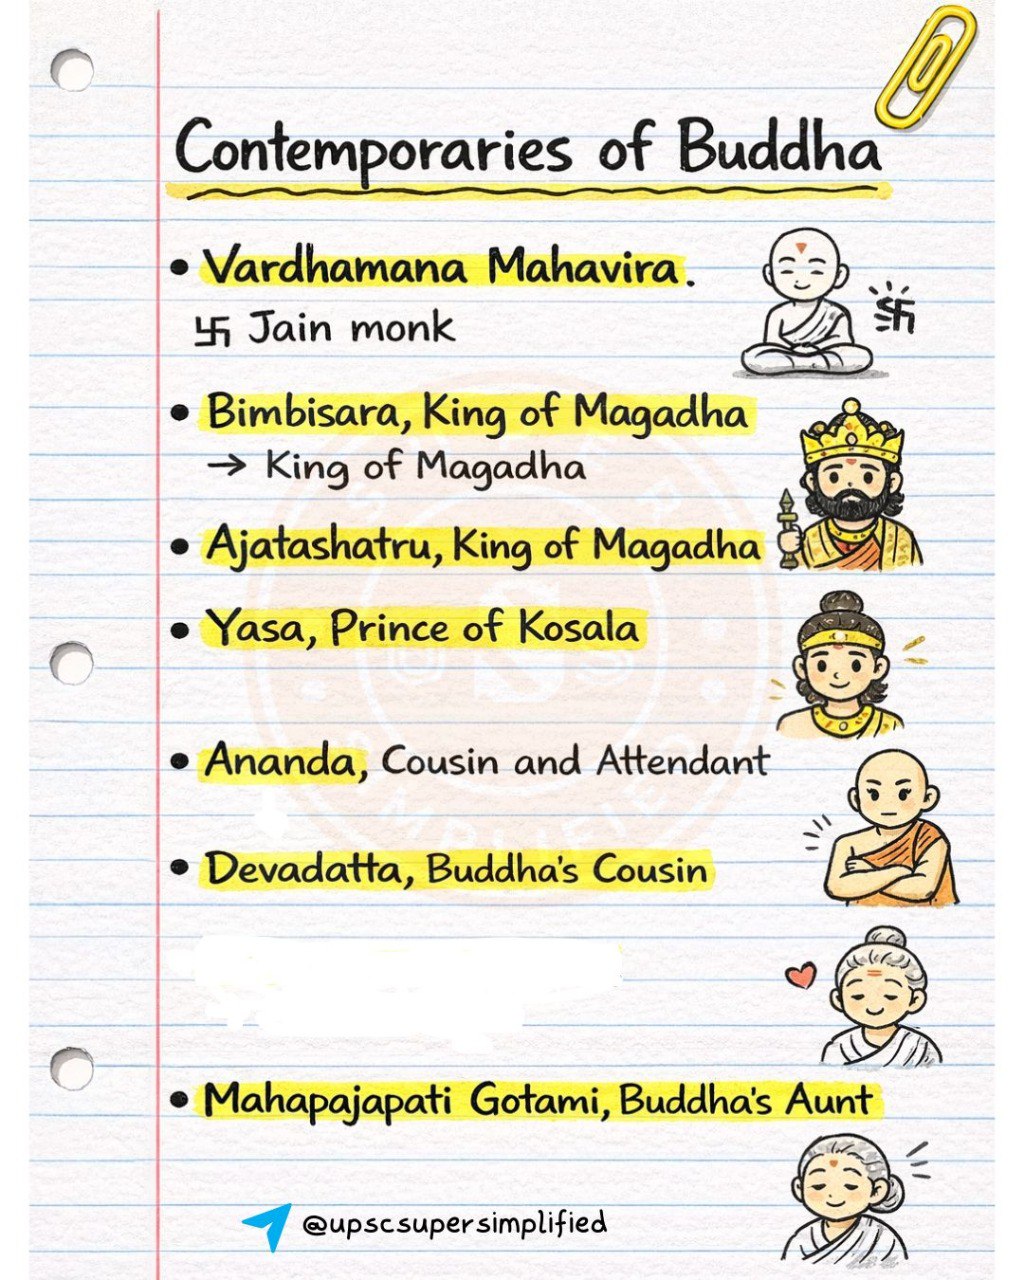 Contemporaries of Buddha
• Vardhamana Mahavira.
卐 Jain monk
卐
• Bimbisara, King of Magadha
→ King of Magadha
• Ajatashatru, King of Magadha
• Yasa, Prince of Kosala
• Ananda, Cousin and Attendant
• Devadatta, Buddha's Cousin
• Mahapajapati Gotami, Buddha's Aunt
@upscsupersimplified